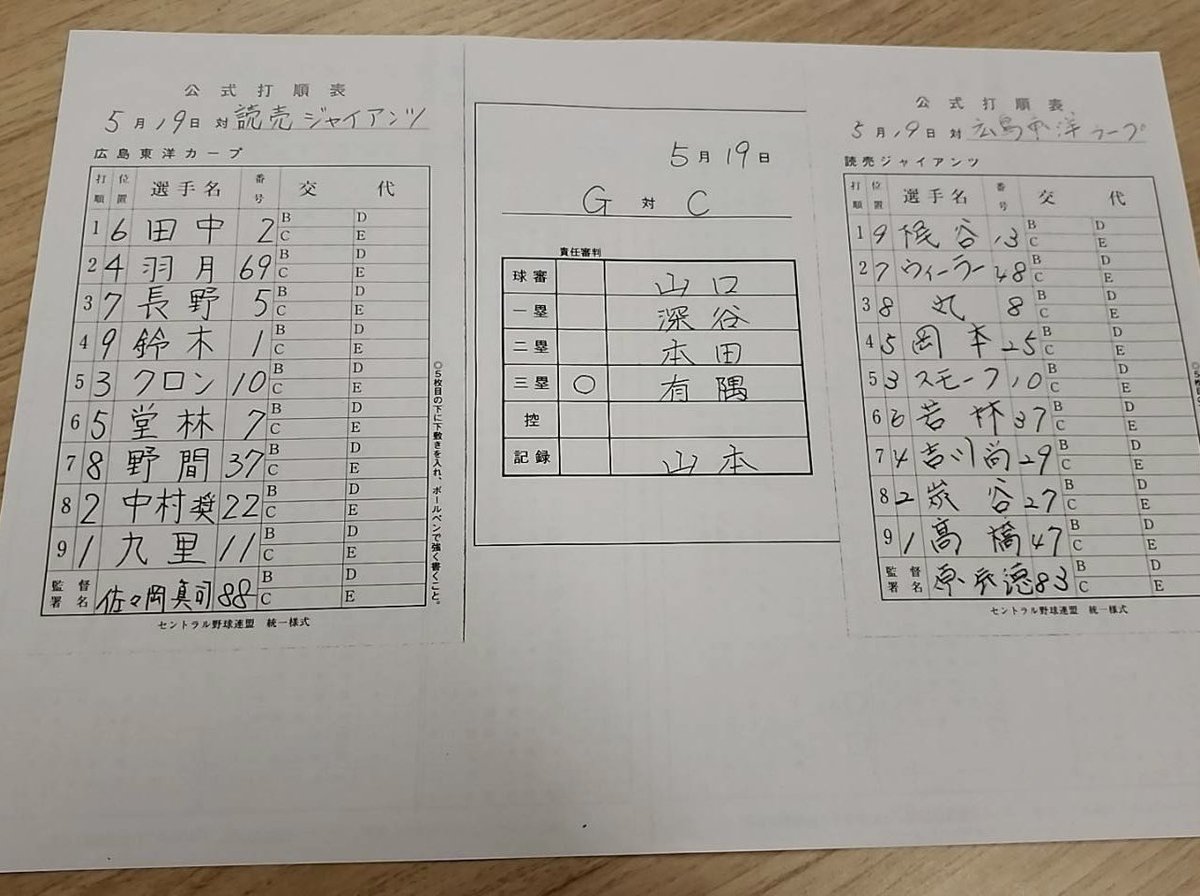 公式打順表
5月19日 対 読売ジャイアンツ
広島東洋カープ
打順 位置 選手名 番号 交代
1 6 田中 2 B D C E
2 4 羽月 69 B D C E
3 7 長野 5 B D C E
4 9 鈴木 1 B D C E
5 3 クロン 10 B D C E
6 5 堂林 7 B D C E
7 8 野間 37 B D C E
8 2 中村奨 22 B D C E
9 1 九里 11 B D C E
監督署名 佐々岡真司 88 B D C E
セントラル野球連盟 統一様式
○5枚目の下に下敷きを入れ、ボールペンで強く書くこと。
5月19日
G 対 C
責任審判
球審 山口
一塁 深谷
二塁 本田
三塁 ○ 有隅
控
記録 山本
公式打順表
5月19日 対 広島東洋カープ
読売ジャイアンツ
打順 位置 選手名 番号 交代
1 9 梶谷 13 B D C E
2 7 ウィーラー 48 B D C E
3 8 丸 8 B D C E
4 5 岡本 25 B D C E
5 3 スモーク 10 B D C E
6 6 若林 37 B D C E
7 4 吉川尚 29 B D C E
8 2 炭谷 27 B D C E
9 1 高橋 47 B D C E
監督署名 原辰徳 83 B D C E
セントラル野球連盟 統一様式